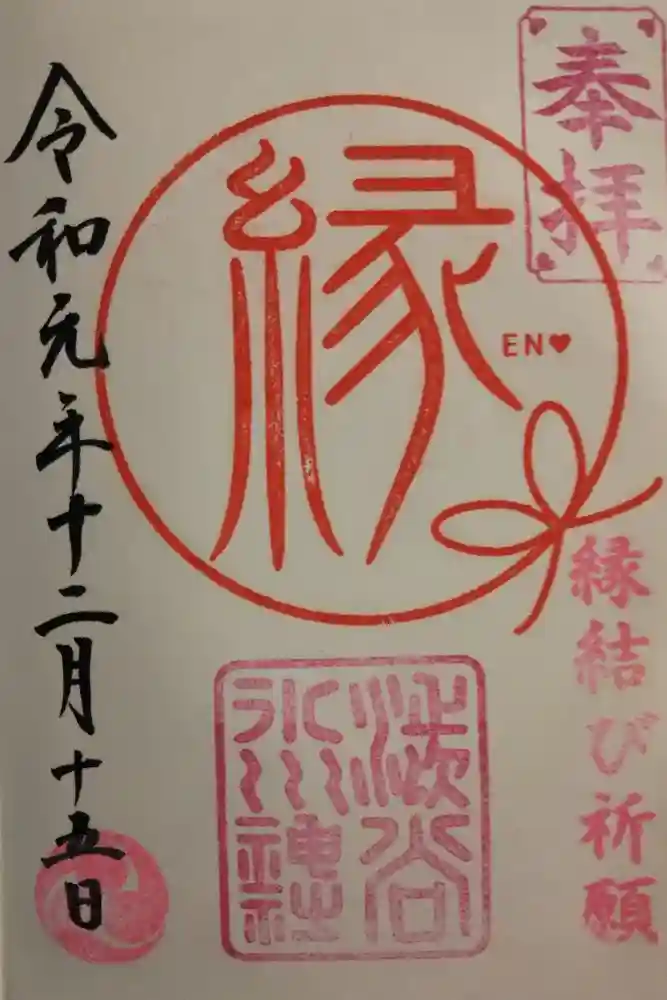 奉拝
縁結び祈願
縁
EN♥
渋谷
氷川
神社
令和元年十二月十五日